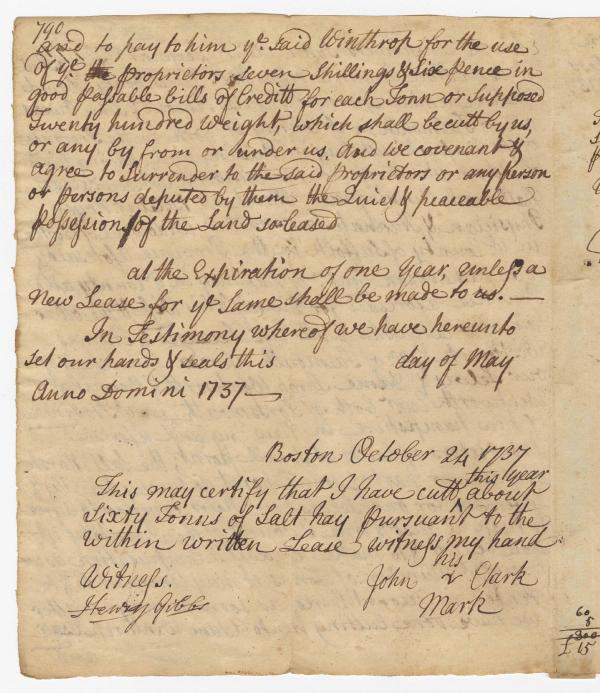 790
and to pay to him ye said Winthrop for the use
of ye Proprietors seven Shillings & Six Pence in
good passable bills of Creditt for each Tonn or Supposed
Twenty hundred weight, which shall be cutt by us,
or any by from or under us. And we covenant &
agree to Surrender to the said Proprietors or any person
or Persons deputed by them the Quiet & peaceable
Possession of the Land so leased
at the Expiration of one Year, unless a
New Lease for ye Same shall be made to us.
In Testimony whereof we have hereunto
set our hands & seals this day of May
Anno Domini 1737
Boston October 24 1737
this year
This may certify that I have cutt about
Sixty Tonns of Salt hay Pursuant to the
within written Lease witness my hand
his
Witness. John Clark
Henry Gibbs Mark
60
5
300
£ 15